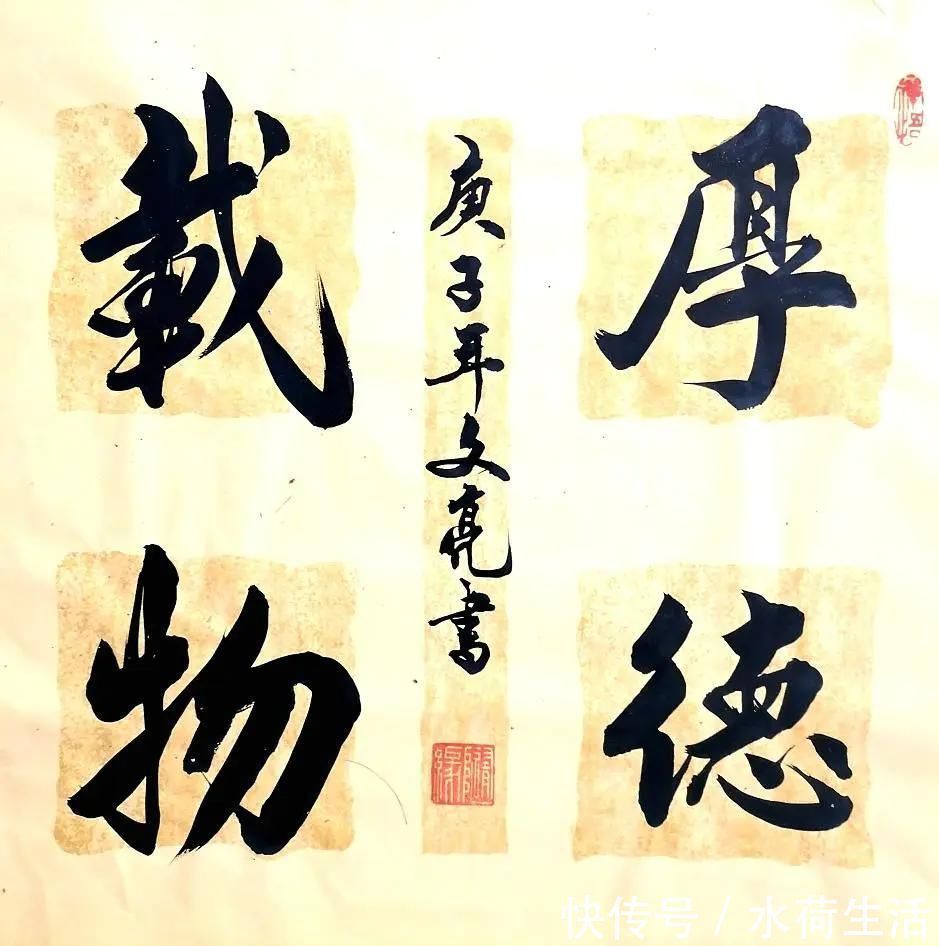 厚德
載物
庚子年文亮書
隨緣
快传号 / 水荷生活